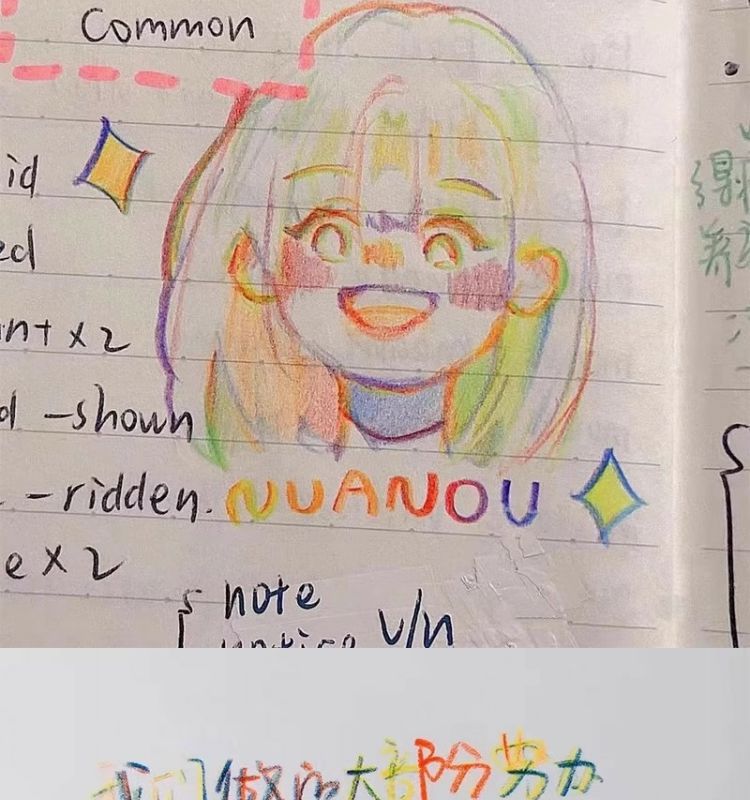 Common
id
ed
x2
-shown
-ridden.
NUANOU
e x2
note
v/n
我们做的大部分努力